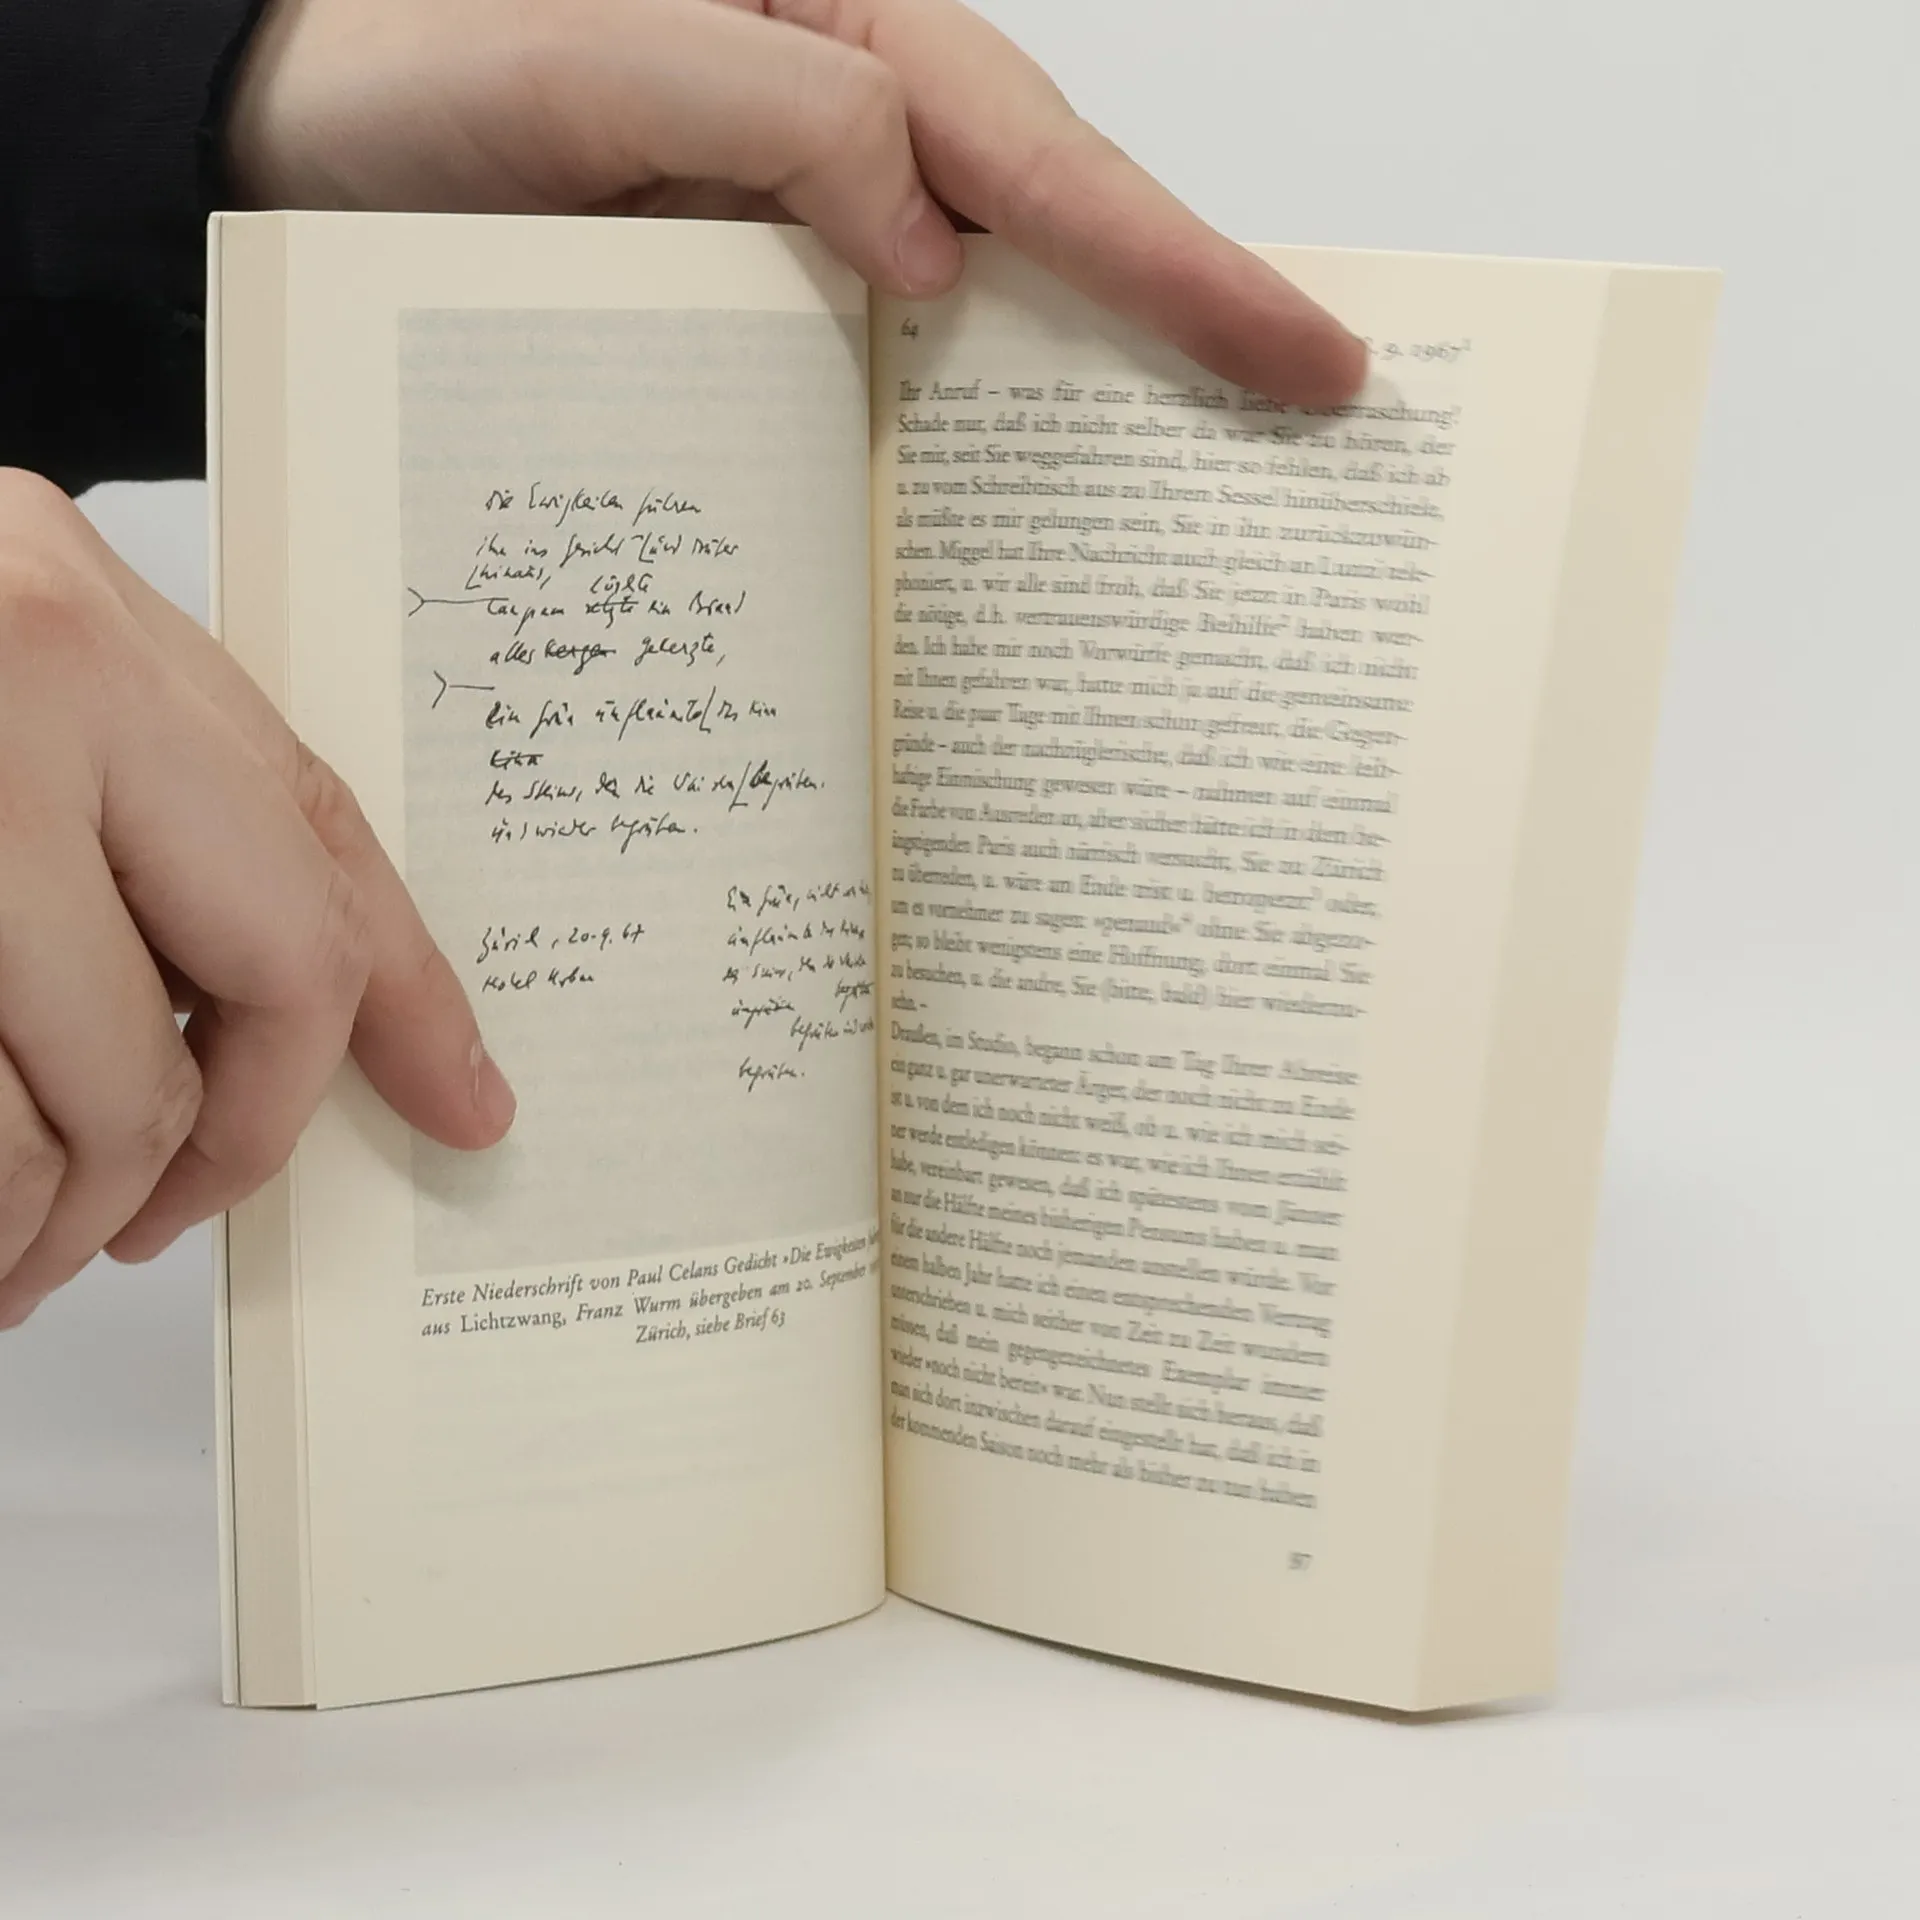 Die Ewigkeiten fuhren
ihm ins Gesicht und drüber
hinaus,
löschte
langsam ein Brand
alles Kerzen gekerzte,
Ein Grün
Kinn
des Steins, den die Waisen begruben.
und wieder begruben.
Zürich, 20.9.67
Hotel Urban
Ein Grün, nicht von
des Steins, den die Waisen
begruben und
begruben.
Erste Niederschrift von Paul Celans Gedicht »Die Ewigkeiten
aus Lichtzwang, Franz Wurm übergeben am 20. September
Zürich, siehe Brief 63
64
9. 1967¹
Ihr Anruf – was für eine herzlich liebe Überraschung!
Schade nur, daß ich nicht selber da war Sie zu hören, der
Sie mir, seit Sie weggefahren sind, hier so fehlen, daß ich ab
u. zu vom Schreibtisch aus zu Ihrem Sessel hinüberschiele,
als müßte es mir gelungen sein, Sie in ihn zurückzuwün-
schen. Miggel hat Ihre Nachricht auch gleich an Lutzi tele-
phoniert, u. wir alle sind froh, daß Sie jetzt in Paris wohl
die nötige, d.h. vertrauenswürdige Beihilfe² haben wer-
den. Ich habe mir noch Vorwürfe gemacht, daß ich nicht
mit Ihnen gefahren war, hatte mich ja auf die gemeinsame
Reise u. die paar Tage mit Ihnen schon gefreut, die Gegen-
gründe – auch der nachzüglerische, daß ich wie eine leib-
haftige Einmischung gewesen wäre – nahmen auf einmal
die Farbe von Ausreden an, aber sicher hätte ich in dem be-
ängstigenden Paris auch närrisch versucht, Sie zu Zürich
zu überreden, u. wäre am Ende trist u. betropetzt³ oder,
um es vornehmer zu sagen: »penaud«⁴ ohne Sie abgezo-
gen; so bleibt wenigstens eine Hoffnung, dort einmal Sie
zu besuchen, u. die andre, Sie (bitte, bald!) hier wiederzu-
sehn. –
Draußen, im Studio, begann schon am Tag Ihrer Abreise
ein ganz u. gar unerwarteter Ärger, der noch nicht zu Ende
ist u. von dem ich noch nicht weiß, ob u. wie ich mich sei-
ner werde entledigen können: es war, wie ich Ihnen erzählt
habe, vereinbart gewesen, daß ich spätestens vom Jänner
an nur die Hälfte meines bisherigen Pensums haben u. man
für die andere Hälfte noch jemanden anstellen würde. Vor
einem halben Jahr hatte ich einen entsprechenden Vertrag
unterschrieben u. mich seither von Zeit zu Zeit wundern
müssen, daß mein gegengezeichnetes Exemplar immer
wieder »noch nicht bereit« war. Nun stellt sich heraus, daß
man sich dort inzwischen darauf eingestellt hat, daß ich in
der kommenden Saison noch mehr als bisher zu tun haben
97